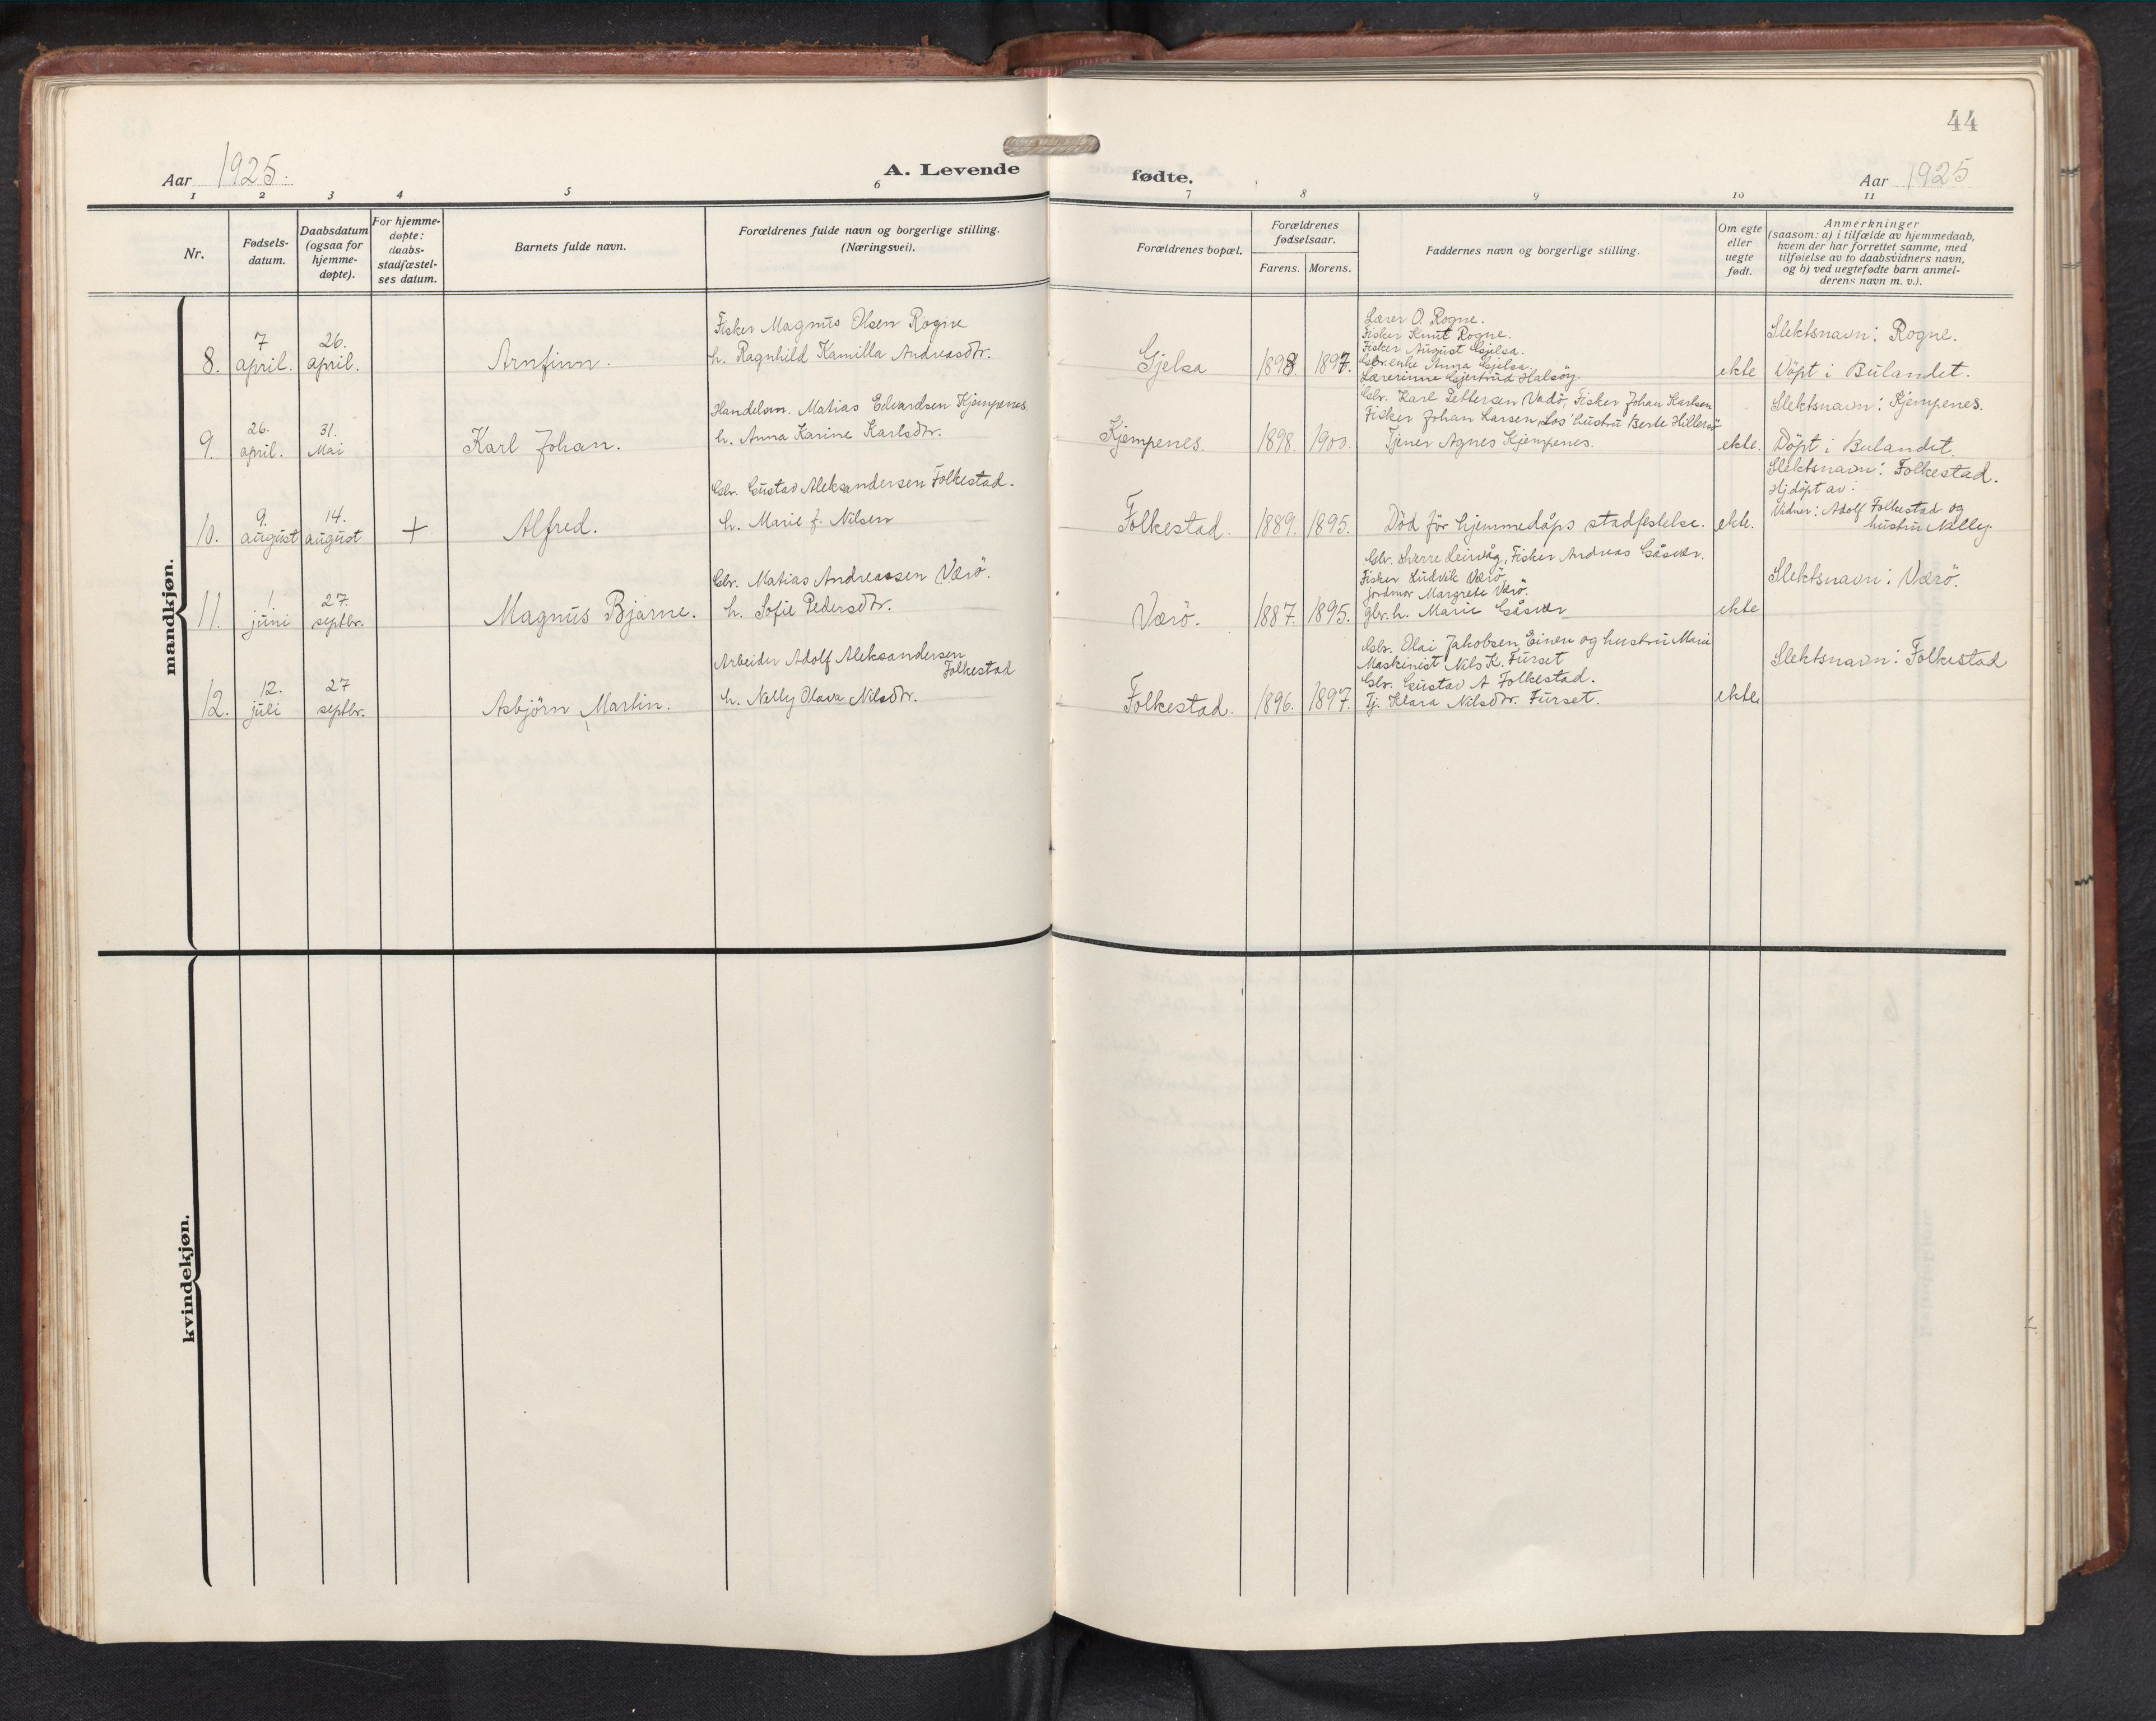 44
Aar 1925.
A. Levende
fødte.
Aar 1925
1 2 3 4 5 6 7 8 9 10 11
Nr.
Fødsels-
datum.
Daabsdatum
(ogsaa for
hjemme-
døpte).
For hjemme-
døpte:
daabs-
stadfæstel-
ses datum.
Barnets fulde navn.
Forældrenes fulde navn og borgerlige stilling.
(Næringsvei).
Forældrenes bopæl.
Forældrenes
fødselsaar.
Farens. Morens.
Faddernes navn og borgerlige stilling.
Om egte
eller
uegte
født.
Anmerkninger
(saasom: a) i tilfælde av hjemmedaab,
hvem der har forrettet samme, med
tilføielse av to daabsvidners navn,
og b) ved uegtefødte barn anmel-
derens navn m. v.).
mandkjøn.
8.
7
april.
26.
april.
Arnfinn.
Fisker Magnus Olsen Rogne
h. Ragnhild Kamilla Andreasdtr.
Gjelsa
1898
1897.
Lærer O. Rogne.
Fisker Knut Rogne.
Fisker August Gjelsa.
Gbr. enke Anna Gjelsa.
Lærerinne Gjertrud Halsöy.
ekte
Slektsnavn: Rogne.
Döpt i Bulandet.
9.
26.
april.
31.
Mai
Karl Johan.
Handelsm. Matias Edvardsen Kjempenes.
h. Anna Karine Karlsdtr.
Kjempenes.
1898.
1900.
Gbr. Karl Pettersen Vadö, Fisker Johan Karlsen
Fisker Johan Larsen, Los' hustru Berte Hillersöy
Tjener Agnes Kjempenes.
ekte.
Slektsnavn: Kjempenes.
Döpt i Bulandet.
10.
9.
august
14.
august
+
Alfred.
Gbr. Gustav Aleksandersen Folkestad.
h. Marie f. Nilsen
Folkestad.
1889.
1895.
Död för hjemmedåps stadfestelse.
ekte.
Slektsnavn: Folkestad.
Hjdöpt av:
Vidner: Adolf Folkestad og
hustru Nelly.
11.
1.
juni
27.
septbr.
Magnus Bjarne.
Gbr. Matias Andreassen Værö.
h. Sofie Pedersdtr.
Værö.
1887.
1895.
Gbr. Sverre Leirvåg, Fisker Andreas Gåsvær.
Fisker Ludvik Værö,
Jordmor Margrete Værö.
gbr. h. Marie Gåsvær
ekte
Slektsnavn: Værö.
12.
12.
juli
27
septbr.
Asbjörn Martin.
Arbeider Adolf Aleksandersen
Folkestad
h. Nelly Olava Nilsdtr.
Folkestad.
1896.
1897.
Gbr. Olai Jakobsen Einen og hustru Marie
Maskinist Nils K. Furset
Gbr. Gustav A Folkestad.
Tj. Klara Nilsdtr. Furset.
ekte
Slektsnavn: Folkestad
kvindekjøn.